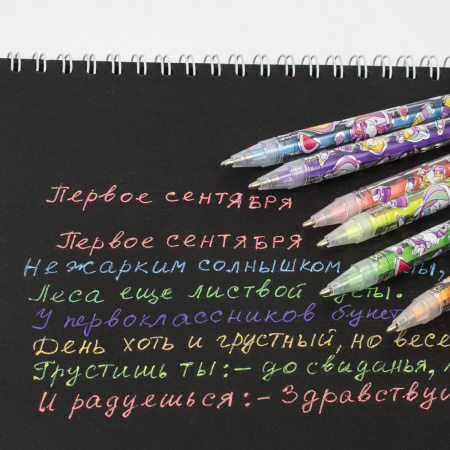 Первое сентября
Первое сентября
Не жарким солнышком
Леса еще листвой густы.
У первоклассников букет
День хоть и грустный, но весе
Грустишь ты:- до свиданья,
И радуешься:- Здравствуй